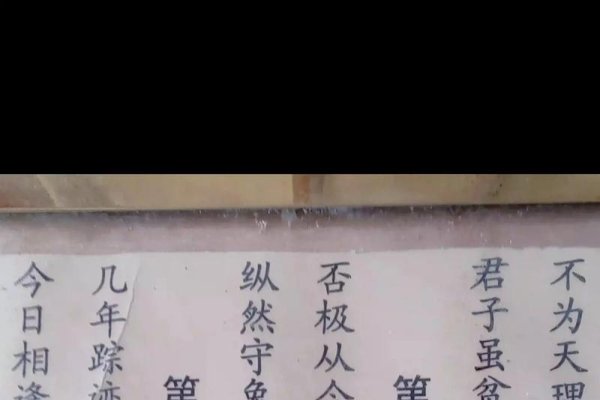 不为天理
君子虽贫
第
否极从今
纵然守兔
第
几年踪迹
今日相逢